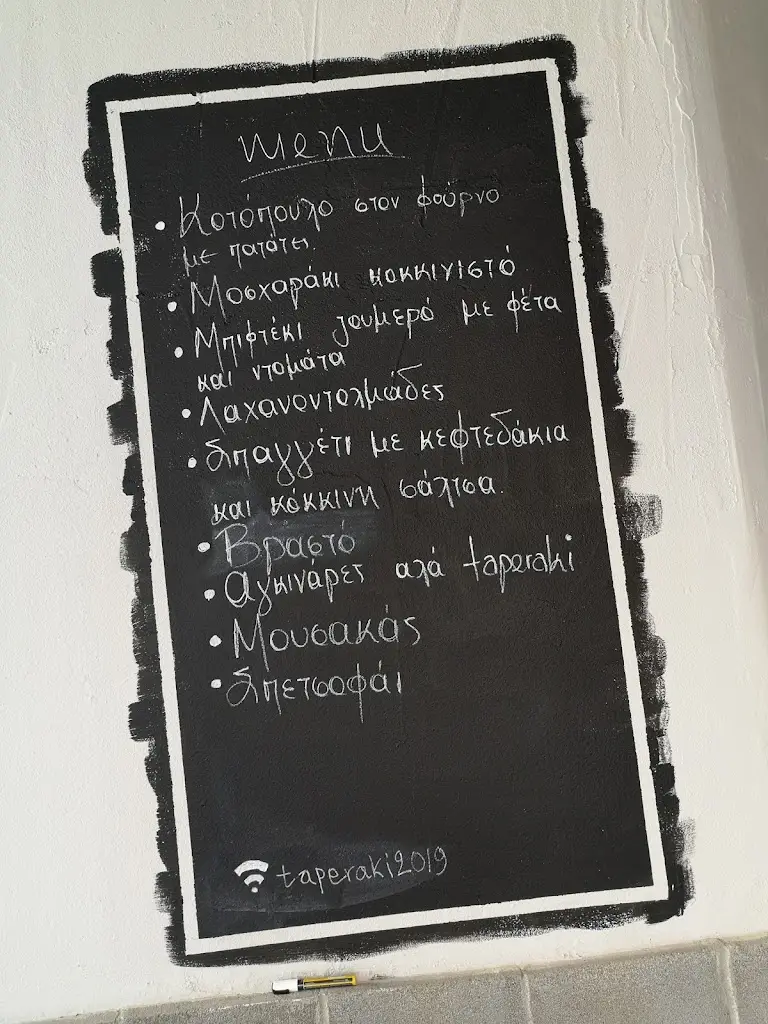 menu
• Κοτόπουλο στον φούρνο
με πατάτες.
• Μοσχαράκι κοκκινιστό
• Μπιφτέκι ζουμερό με φέτα
και ντομάτα
• Λαχανοντολμάδες
• Σπαγγέτι με κεφτεδάκια
και κόκκινη σάλτσα.
• Βραστό
• Αγκινάρες αλά taperaki
• Μουσακάς
• Σπετσοφάι
taperaki2019